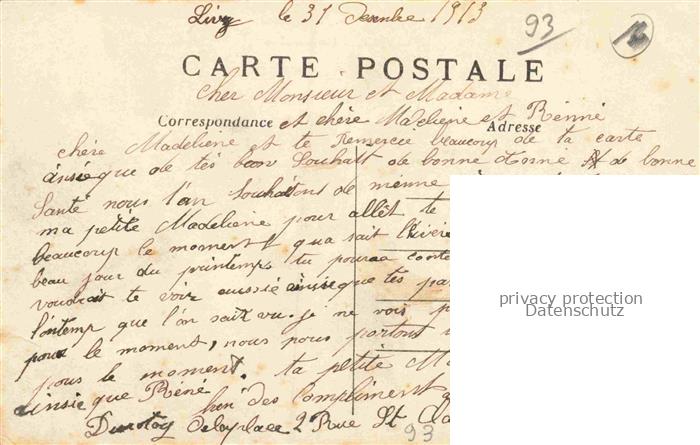 Livry le 31 Desenbre 1913
93
CARTE POSTALE
Cher Monsieur et Madame
Correspondance et chère Madeleine et Rénné
Adresse
chère Madeleine et te Remercie beaucoup de ta carte
ainsie que de tes bon Souhait de bonne Anné de bonne
Santé nous l'an Souhaitons de mênne
ma petite Madeleine pour allêt te
beaucoup le moment qua sait l'hivère
beau jour du printemps tu pourra conte
voudrait te voir aussie ainsie que tes par
lontemp que l'on sait vu. je ne vois p
pour le moment, nous nous portont
pour le moment. ta petite M
ainsie que Réné
bien des Compliment
Delaplace 2 Rue St Cla
93
privacy protection
Datenschutz